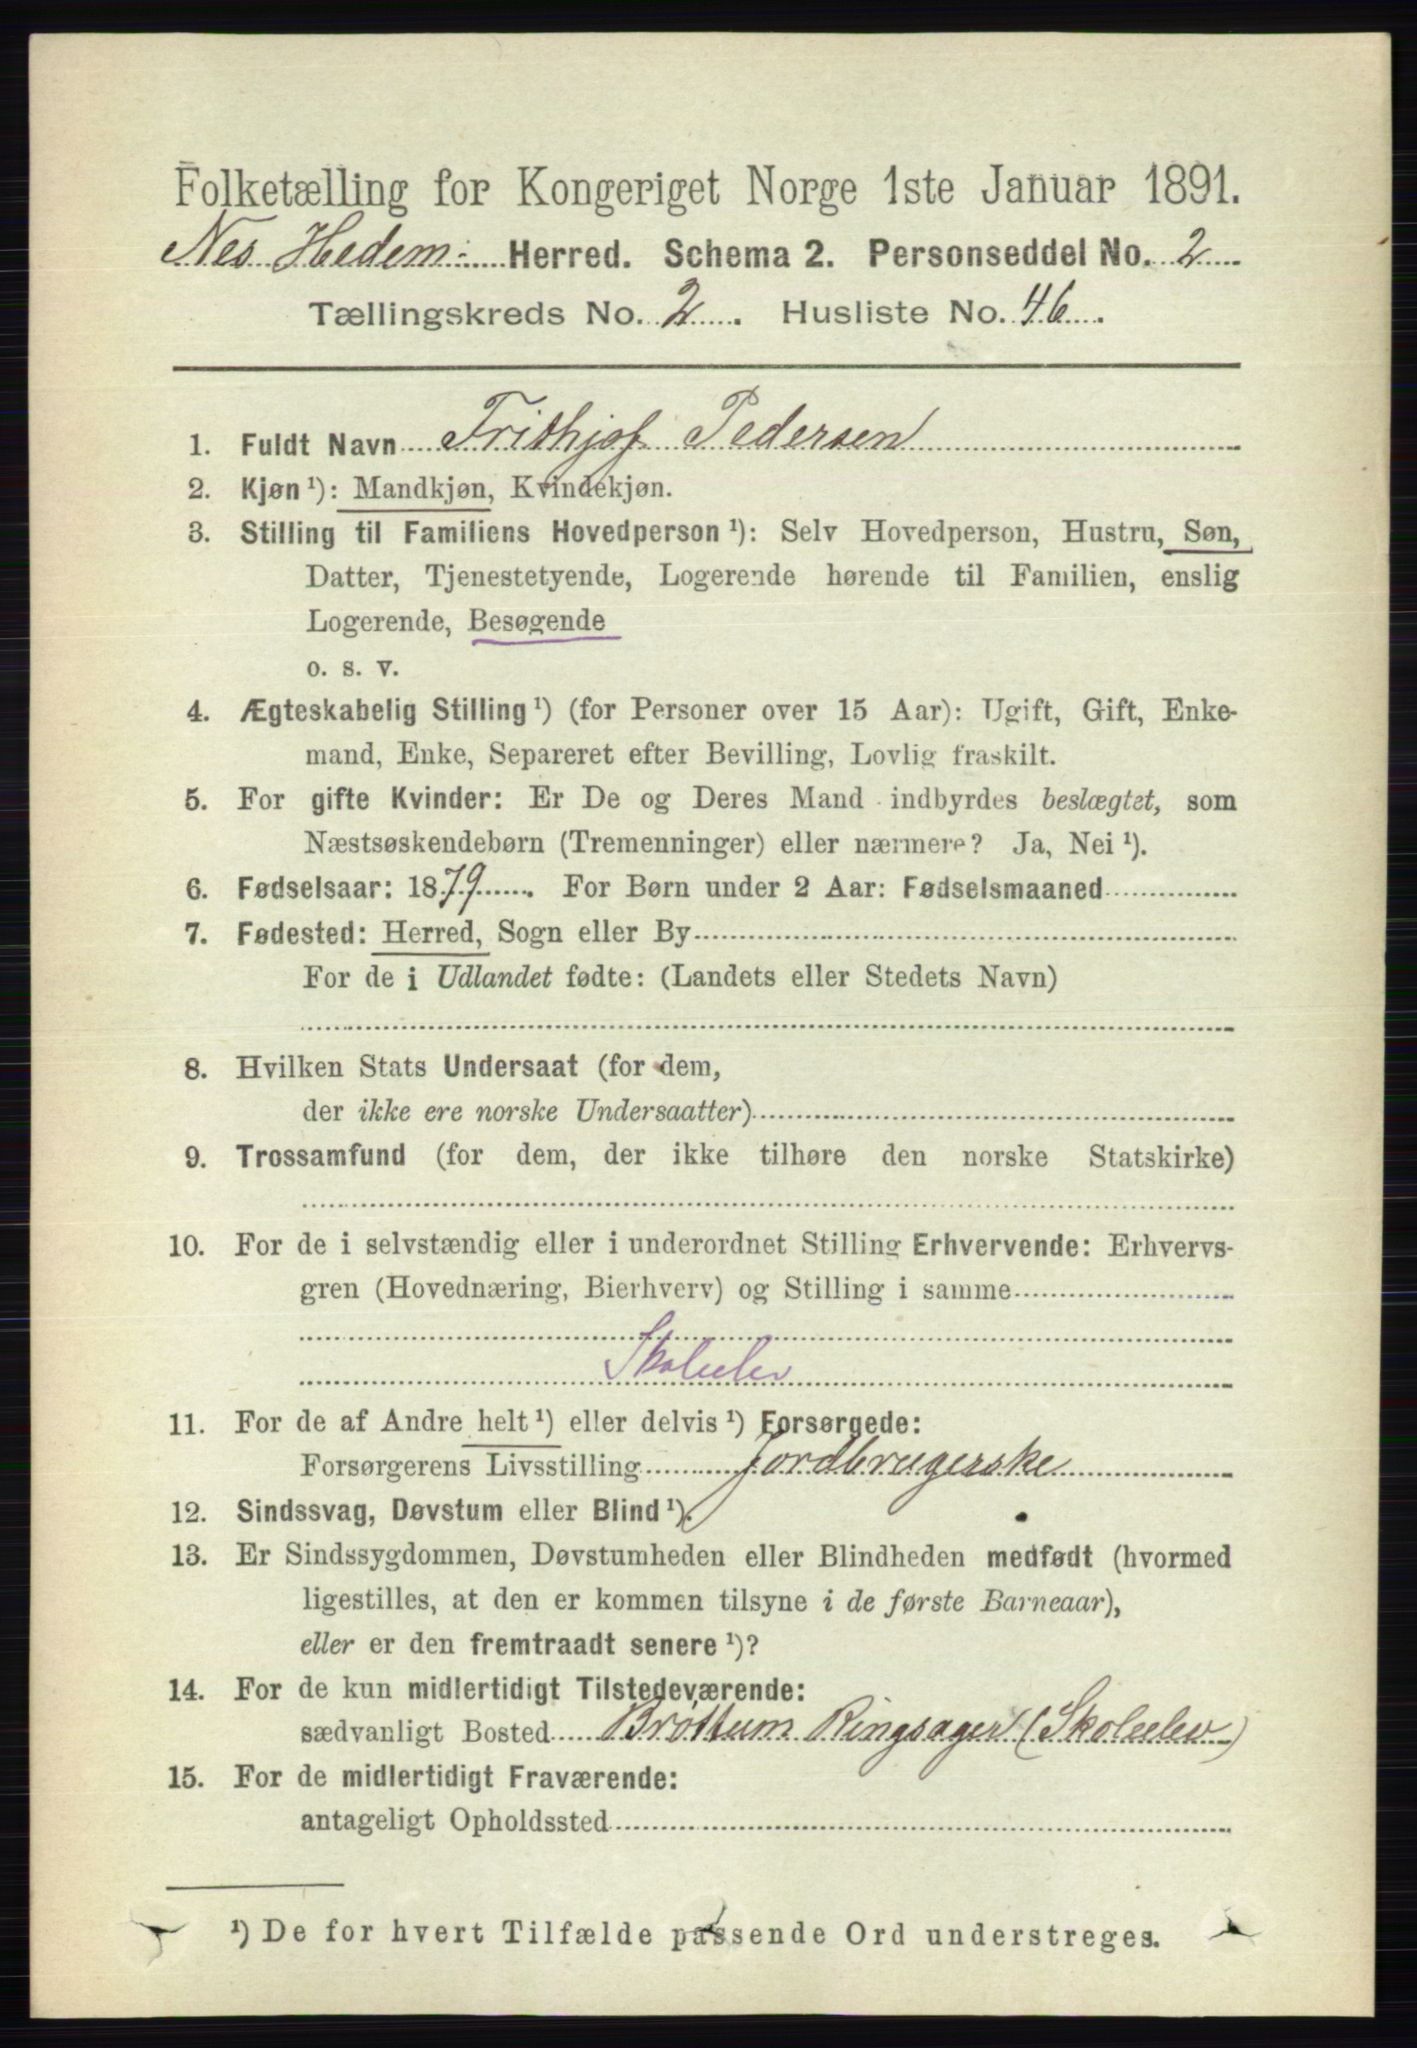 Folketælling for Kongeriget Norge 1ste Januar 1891.
Nes Hedem: Herred. Schema 2. Personseddel No. 2
Tællingskreds No. 2. Husliste No. 46.
1. Fuldt Navn Frithjof Pedersen
2. Kjøn ¹): Mandkjøn, Kvindekjøn.
3. Stilling til Familiens Hovedperson ¹): Selv Hovedperson, Hustru, Søn,
Datter, Tjenestetyende, Logerende hørende til Familien, enslig
Logerende, Besøgende
o. s. v.
4. Ægteskabelig Stilling ¹) (for Personer over 15 Aar): Ugift, Gift, Enke-
mand, Enke, Separeret efter Bevilling, Lovlig fraskilt.
5. For gifte Kvinder: Er De og Deres Mand indbyrdes beslægtet, som
Næstsøskendebørn (Tremenninger) eller nærmere? Ja, Nei ¹).
6. Fødselsaar: 1879. For Børn under 2 Aar: Fødselsmaaned
7. Fødested: Herred, Sogn eller By
For de i Udlandet fødte: (Landets eller Stedets Navn)
8. Hvilken Stats Undersaat (for dem,
der ikke ere norske Undersaatter)
9. Trossamfund (for dem, der ikke tilhøre den norske Statskirke)
10. For de i selvstændig eller i underordnet Stilling Erhvervende: Erhvervs-
gren (Hovednæring, Bierhverv) og Stilling i samme
Skoleelev
11. For de af Andre helt ¹) eller delvis ¹) Forsørgede:
Forsørgerens Livsstilling Jordbrugerske
12. Sindssvag, Døvstum eller Blind ¹).
13. Er Sindssygdommen, Døvstumheden eller Blindheden medfødt (hvormed
ligestilles, at den er kommen tilsyne i de første Barneaar),
eller er den fremtraadt senere ¹)?
14. For de kun midlertidigt Tilstedeværende:
sædvanligt Bosted Brøttum Ringsager (Skoleelev)
15. For de midlertidigt Fraværende:
antageligt Opholdssted
¹) De for hvert Tilfælde passende Ord understreges.